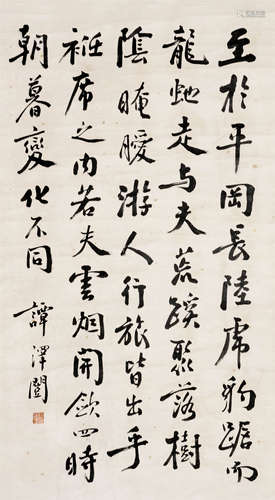 至於平岡長陸虎豹踞而
龍虵走与夫荒蹊聚落樹
陰晻曖游人行旅皆出乎
衽席之内若夫雲烟開歛四時
朝暮變化不同 譚澤闓